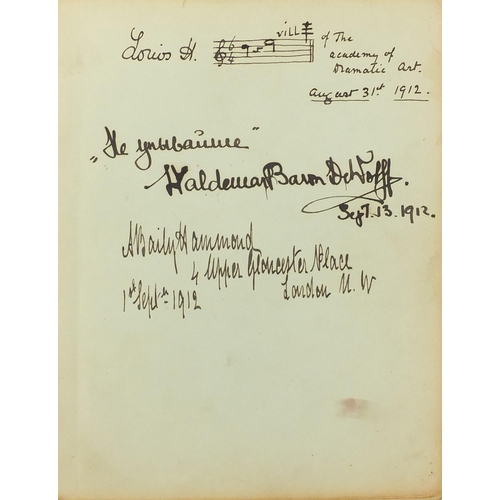 Louis H. vill of The
academy of
Dramatic Art.
August 31st 1912.
„Не унывайте"
Waldemar Baron DeWolff.
Sept. 13. 1912.
A Baily Hammond
4 Upper Gloucester Place
London N. W
1st Septr 1912